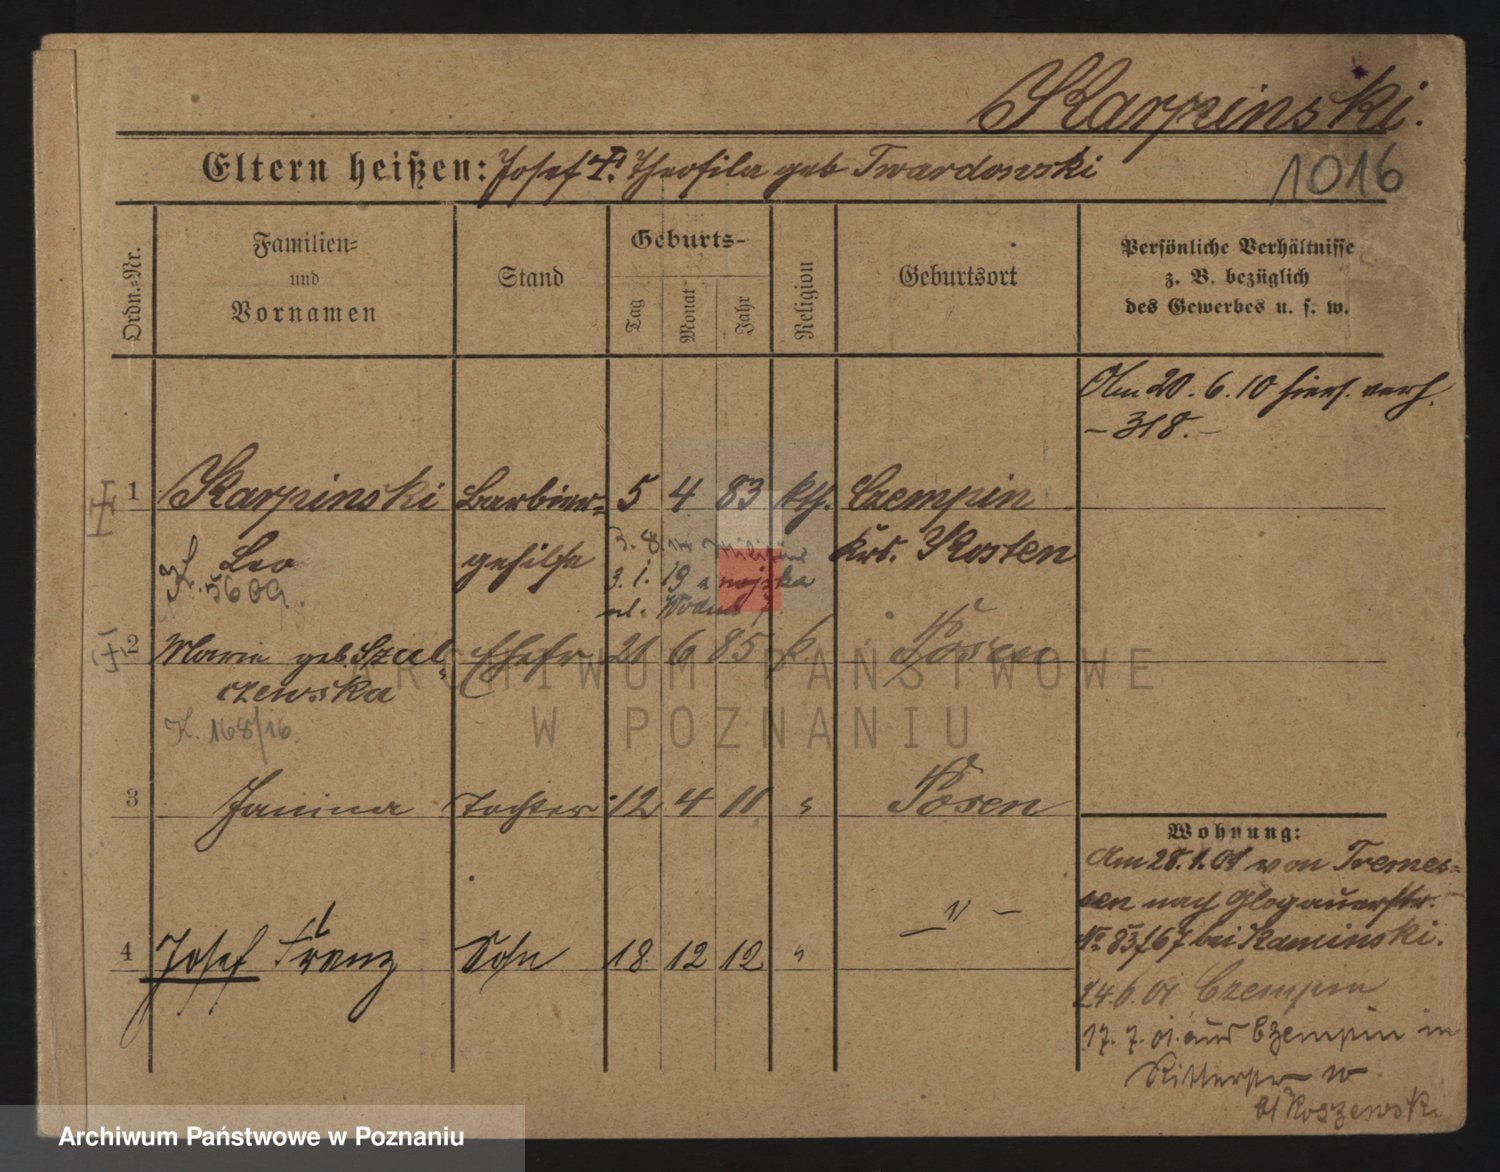 Karpinski.
Eltern heißen: Josef u. Theofila geb Twardowski
1016
Ordn.-Nr.
Familien-
und
Vornamen
Stand
Geburts-
Tag
Monat
Jahr
Religion
Geburtsort
Persönliche Verhältnisse
z. B. bezüglich
des Gewerbes u. s. w.
Am 20.6.10 hiers. verh.
- 318. -
1 Karpinski Barbier- 5 4 83 kth. Czempin
Leo gehilfe Krs. Kosten
5609.
3. 1. 19
2 Marie geb. Szul- Ehefr 21 6 85 k. Posen
czewska
K. 168/16
3 Janina Tochter 12 4 11 " Posen
4 Josef Franz Sohn 18 12 12 " - " -
Wohnung:
Am 28.1.01 von Tremes-
sen nach Glogauerstr.
No 83/67 bei Kaminski.
24.6.01 Czempin
17.7.01 aus Czempin in
Ritterstr
Koszewski
ARCHIWUM PAŃSTWOWE
W POZNANIU
Archiwum Państwowe w Poznaniu